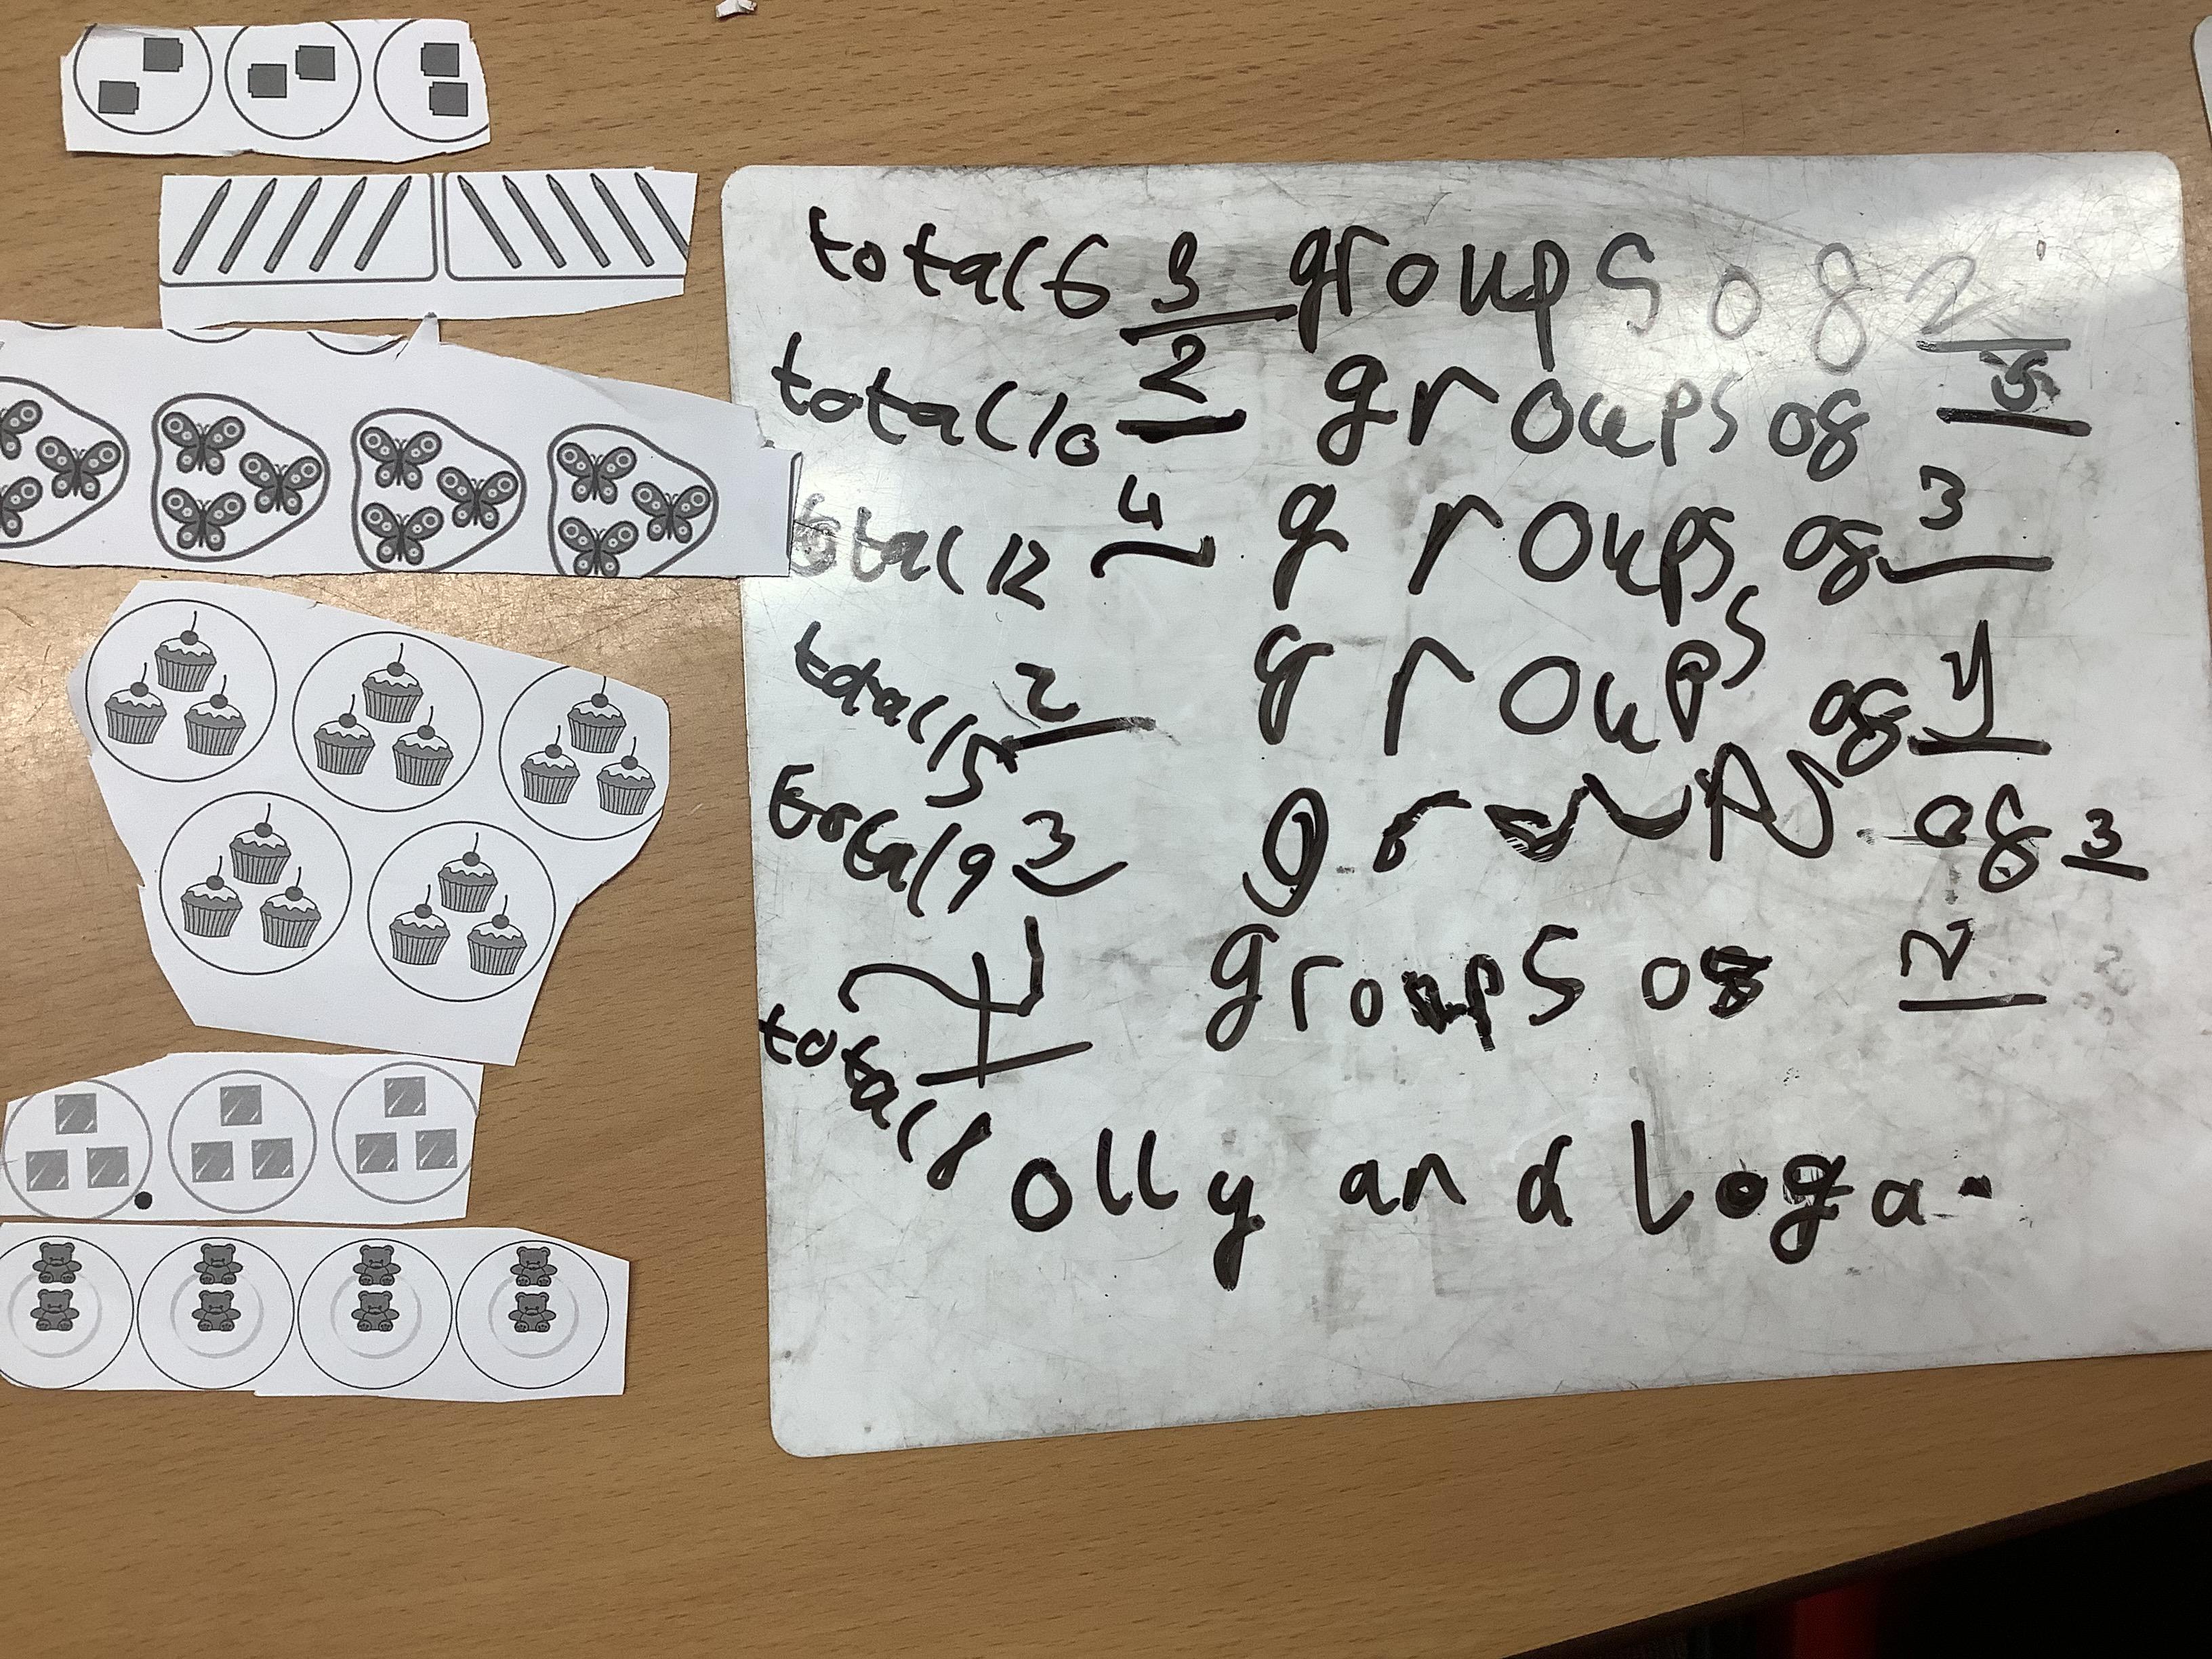 total 6 3 groups of 2
total 10 2 groups of 5
total 12 4 groups of 3
total 15 2 groups of 4
total 9 3 groups of 3
total 8 4 groups of 2
olly and loga